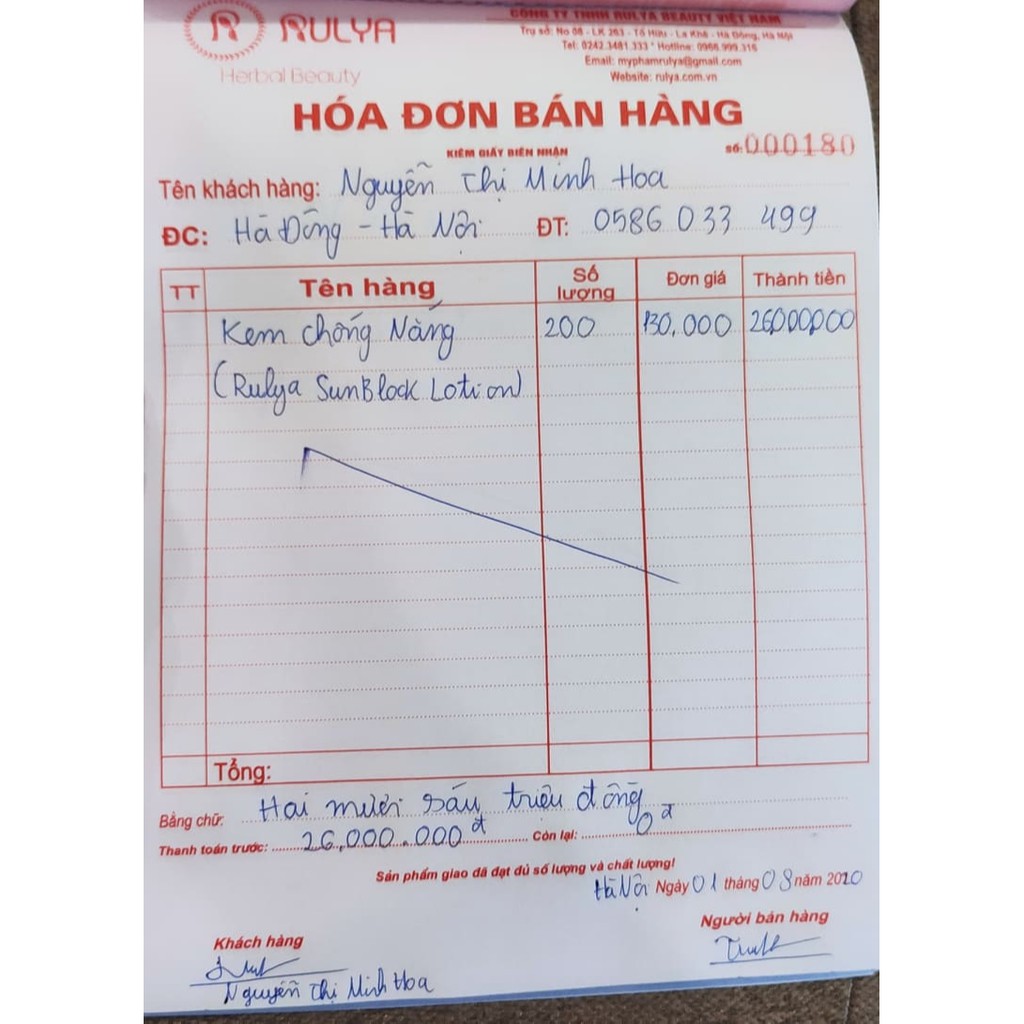 RULYA
Herbal Beauty
CÔNG TY TNHH RULYA BEAUTY VIỆT NAM
Trụ sở: No 08 - LK 263 - Tố Hữu - La Khê - Hà Đông, Hà Nội
Tel: 0242.3481.333 * Hotline: 0966.999.316
Email: myphamrulya@gmail.com
Website: rulya.com.vn
HÓA ĐƠN BÁN HÀNG
KIÊM GIẤY BIÊN NHẬN
Số: 000180
Tên khách hàng: Nguyễn Thị Minh Hoa
ĐC: Hà Đông - Hà Nội ĐT: 0586 033 499
TT Tên hàng Số lượng Đơn giá Thành tiền
Kem chống Nắng 200 130.000 26000000
(Rulya SunBlock Lotion)
Tổng:
Bằng chữ: Hai mươi sáu triệu đồng
Thanh toán trước: 26.000.000đ Còn lại: 0đ
Sản phẩm giao đã đạt đủ số lượng và chất lượng!
Hà Nội Ngày 01 tháng 08 năm 2020
Khách hàng Người bán hàng
Nguyễn Thị Minh Hoa